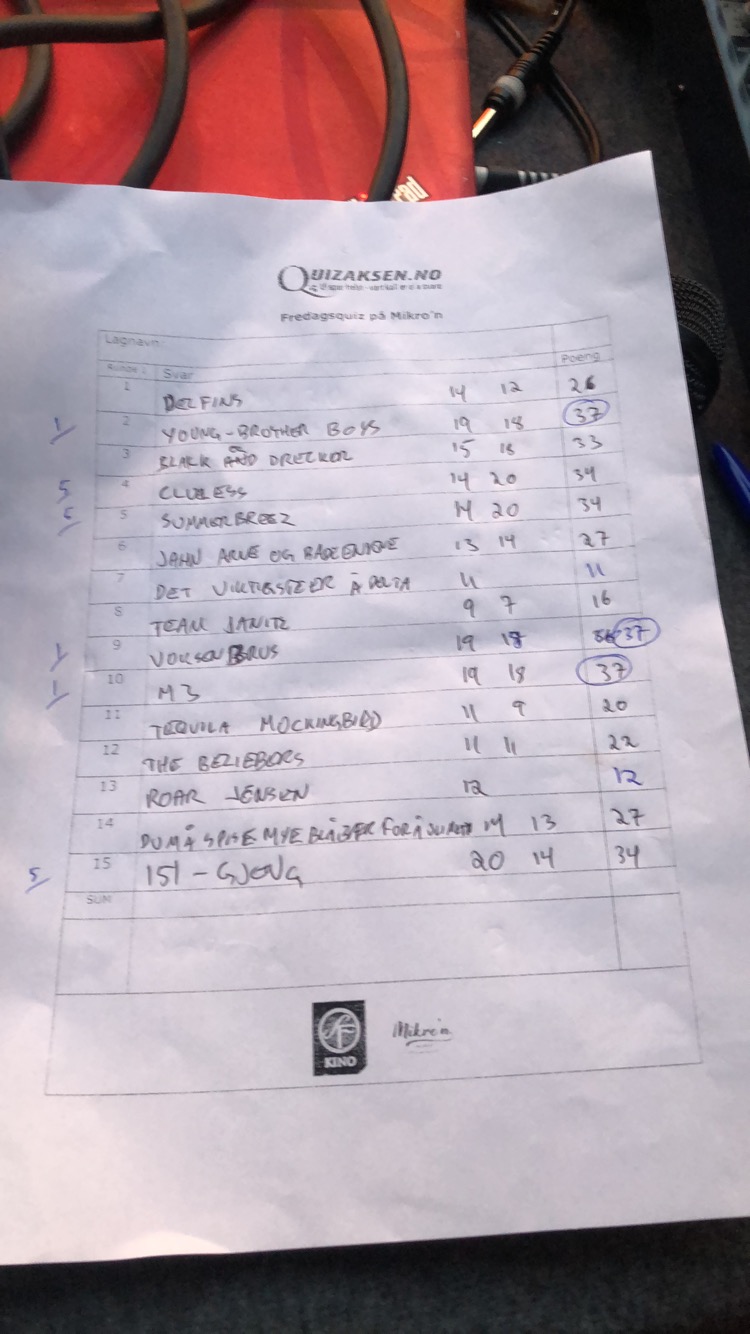 QUIZAKSEN.NO
Fredagsquiz på Mikro'n
Lagnavn:
Svar Poeng
1 DELFINS 14 12 26
1 2 YOUNG-BROTHER BOYS 19 18 37
3 BLACK AND DRECKER 15 18 33
5 4 CLUELESS 14 20 34
5 SUMMERBREEZ 14 20 34
6 JAHN ARNE OG 13 14 27
7 DET Å 11 11
8 TEAM JANITZ 9 7 16
1 9 VOKSENBRUS 19 18 37
1 10 M3 19 18 37
11 TEQUILA MOCKINGBIRD 11 9 20
12 THE BEZIEBORS 11 11 22
13 ROAR JENSEN 12 12
14 DU MÅ SPISE MYE FOR Å 14 13 27
5 15 151-GJENG 20 14 34
SUM
KINO
Mikro'n